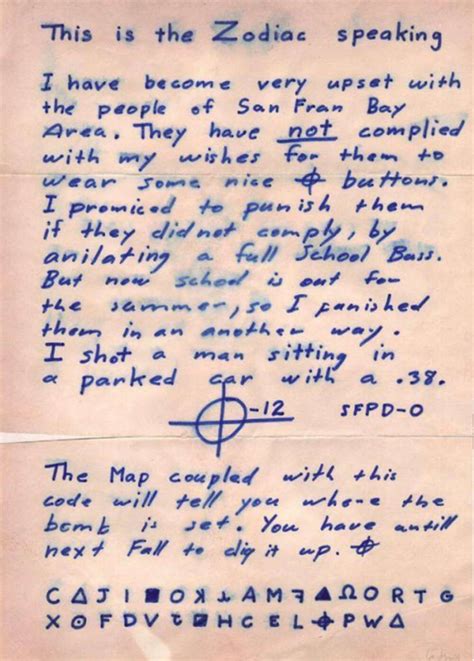 This is the Zodiac speaking
I have become very upset with
the people of San Fran Bay
Area. They have not complied
with my wishes for them to
wear some nice ⌖ buttons.
I promiced to punish them
if they did not comply, by
anilating a full School Buss.
But now school is out for
the summer, so I punished
them in an another way.
I shot a man sitting in
a parked car with a .38.
⌖-12 SFPD-0
The Map coupled with this
code will tell you where the
bomb is set. You have antill
next Fall to dig it up. ⌖
C Δ J I ■ O K ⅄ A M Ⅎ ▲ Ω O R T G
X ⊙ F D V Ƨ ■ H C E L ⌖ P W Δ